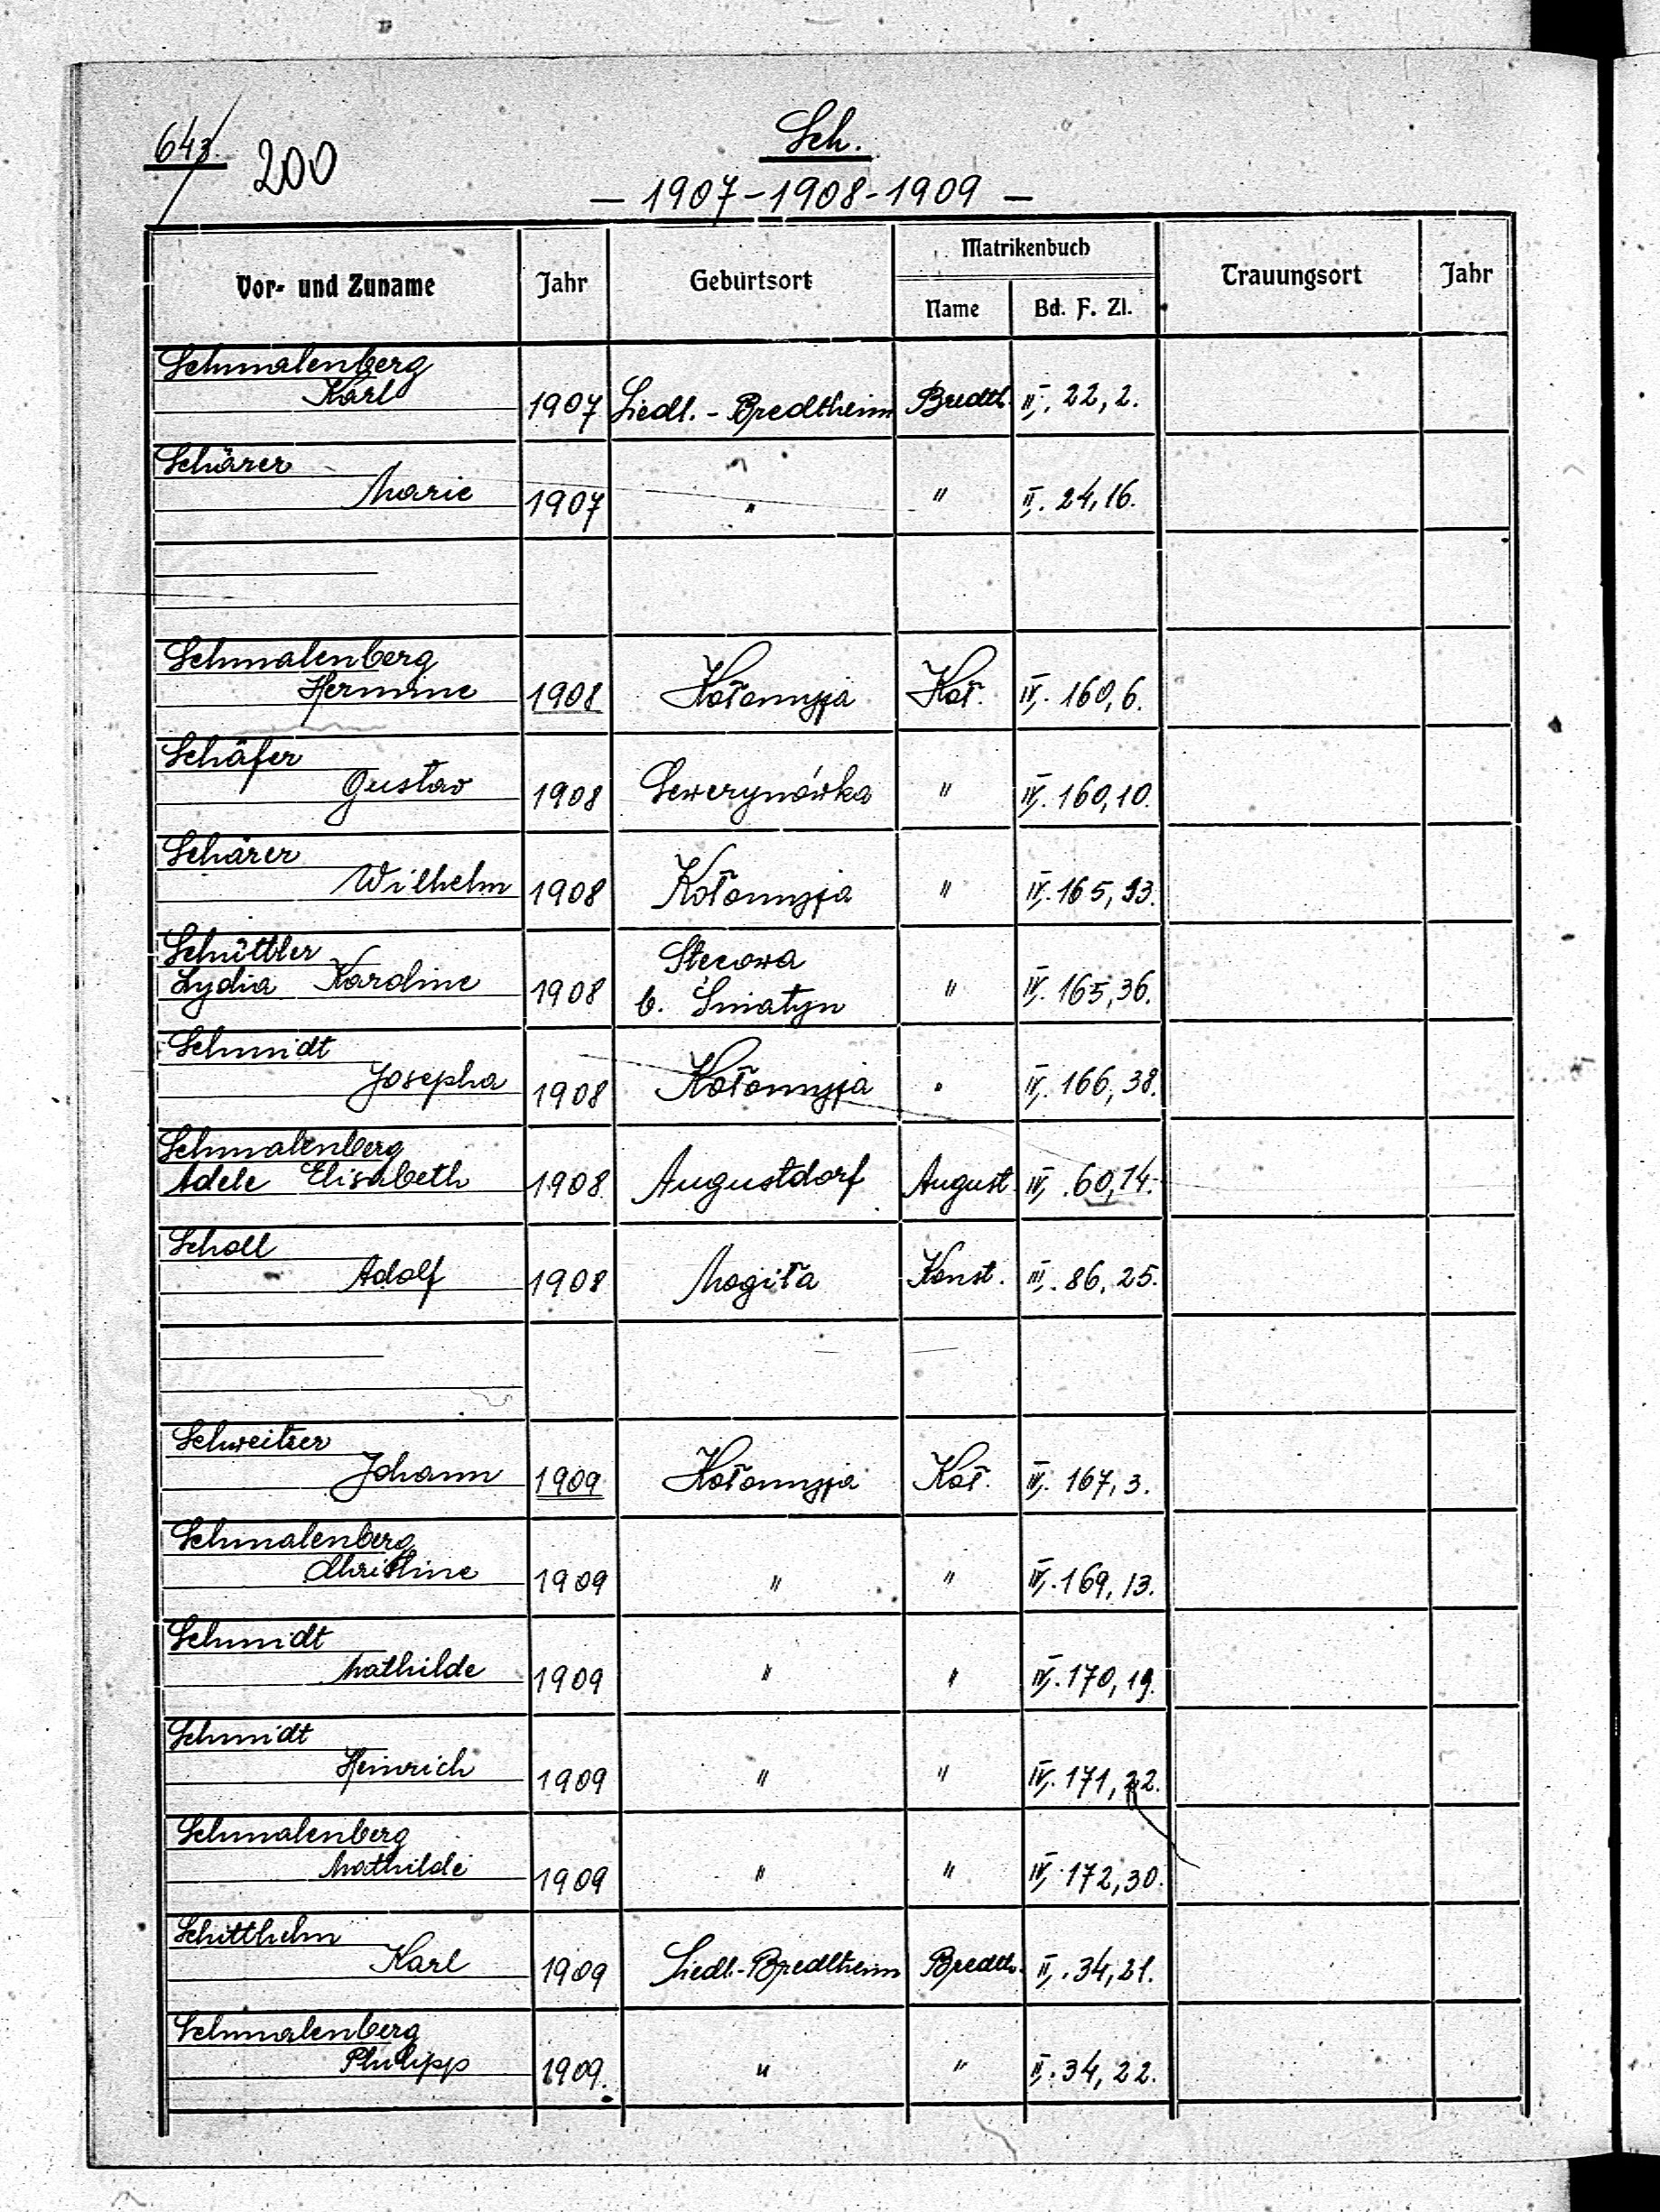 643. 200
Sch.
— 1907-1908-1909 —
Vor- und Zuname Jahr Geburtsort Matrikenbuch Trauungsort Jahr
Name Bd. F. Zl.
Schmalenberg
Karl 1907 Siedl.-Bredtheim Bredth. II. 22, 2.
Schärer
Marie 1907 " " II. 24, 16.
Schmalenberg
Hermine 1908 Kołomyja Koł. IV. 160, 6.
Schäfer
Gustav 1908 Sewerynówka " IV. 160, 10.
Schärer
Wilhelm 1908 Kołomyja " IV. 165, 33.
Schüttler Stecowa
Lydia Karoline 1908 b. Śniatyn " IV. 165, 36.
Schmidt
Josepha 1908 Kołomyja " IV. 166, 38.
Schmalenberg
Adele Elisabeth 1908 Augustdorf August. IV. 60, 14.
Scholl
Adolf 1908 Mogiła Konst. III. 86, 25.
Schweitzer
Johann 1909 Kołomyja Koł. IV. 167, 3.
Schmalenberg
Christine 1909 " " IV. 169, 13.
Schmidt
Mathilde 1909 " " IV. 170, 19.
Schmidt
Heinrich 1909 " " IV. 171, 22.
Schmalenberg
Mathilde 1909 " " IV. 172, 30.
Schitthelm
Karl 1909 Siedl.-Bredtheim Bredth. II. 34, 21.
Schmalenberg
Philipp 1909. " " II. 34, 22.